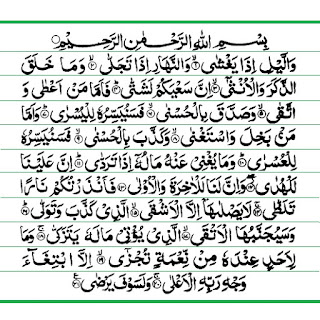 بِسْمِ اللهِ الرَّحْمٰنِ الرَّحِيْمِ
وَالَّيْلِ اِذَا يَغْشٰى ۙ۱ وَالنَّهَارِ اِذَا تَجَلّٰى ۙ۲ وَمَا خَلَقَ
الذَّكَرَ وَالْاُنْثٰٓى ۙ۳ اِنَّ سَعْيَكُمْ لَشَتّٰى ؕ۴ فَاَمَّا مَنْ اَعْطٰى وَ
اتَّقٰى ۙ۵ وَصَدَّقَ بِالْحُسْنٰى ۙ۶ فَسَنُيَسِّرُهٗ لِلْيُسْرٰى ؕ۷ وَاَمَّا
مَنْۢ بَخِلَ وَاسْتَغْنٰى ۙ۸ وَكَذَّبَ بِالْحُسْنٰى ۙ۹ فَسَنُيَسِّرُهٗ
لِلْعُسْرٰى ؕ۱۰ وَمَا يُغْنِيْ عَنْهُ مَالُهٗٓ اِذَا تَرَدّٰى ؕ۱۱ اِنَّ عَلَيْنَا
لَلْهُدٰى ۖ۱۲ وَاِنَّ لَنَا لَلْاٰخِرَةَ وَالْاُوْلٰى ۱۳ فَاَنْذَرْتُكُمْ نَارًا
تَلَظّٰى ۚ۱۴ لَا يَصْلٰىهَآ اِلَّا الْاَشْقَى ۙ۱۵ الَّذِيْ كَذَّبَ وَتَوَلّٰى ؕ۱۶
وَسَيُجَنَّبُهَا الْاَتْقَى ۙ۱۷ الَّذِيْ يُؤْتِيْ مَالَهٗ يَتَزَكّٰى ۚ۱۸ وَمَا
لِاَحَدٍ عِنْدَهٗ مِنْ نِّعْمَةٍ تُجْزٰٓى ۙ۱۹ اِلَّا ابْتِغَآءَ
وَجْهِ رَبِّهِ الْاَعْلٰى ۚ۲۰ وَلَسَوْفَ يَرْضٰى ۲۱